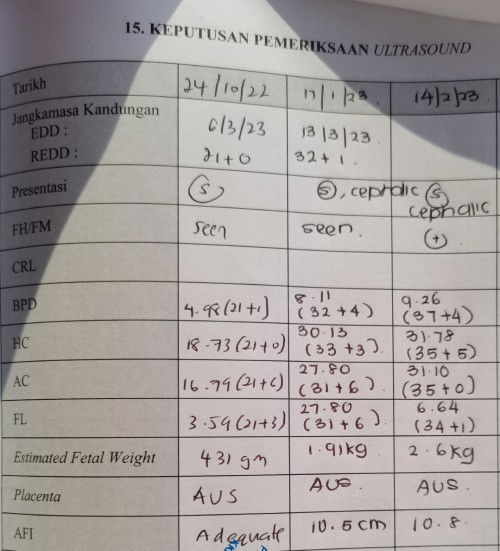 15. KEPUTUSAN PEMERIKSAAN ULTRASOUND
Tarikh 24/10/22 17/1/23. 14/2/23.
Jangkamasa Kandungan
EDD : 6/3/23 13/3/23.
REDD : 21+0 32+1.
Presentasi (S) (S), cephalic (S) cephalic
FH/FM seen seen. (+)
CRL
BPD 4.98(21+1) 8.11 (32+4) 9.26 (37+4)
HC 18.73(21+0) 30.13 (33+3). 31.78 (35+5)
AC 16.79(21+6) 27.80 (31+6). 31.10 (35+0)
FL 3.59(21+3) 27.80 (31+6). 6.64 (34+1)
Estimated Fetal Weight 431 gm 1.91kg 2.6kg
Placenta AUS AUS. AUS.
AFI Adequate 10.5cm 10.8.